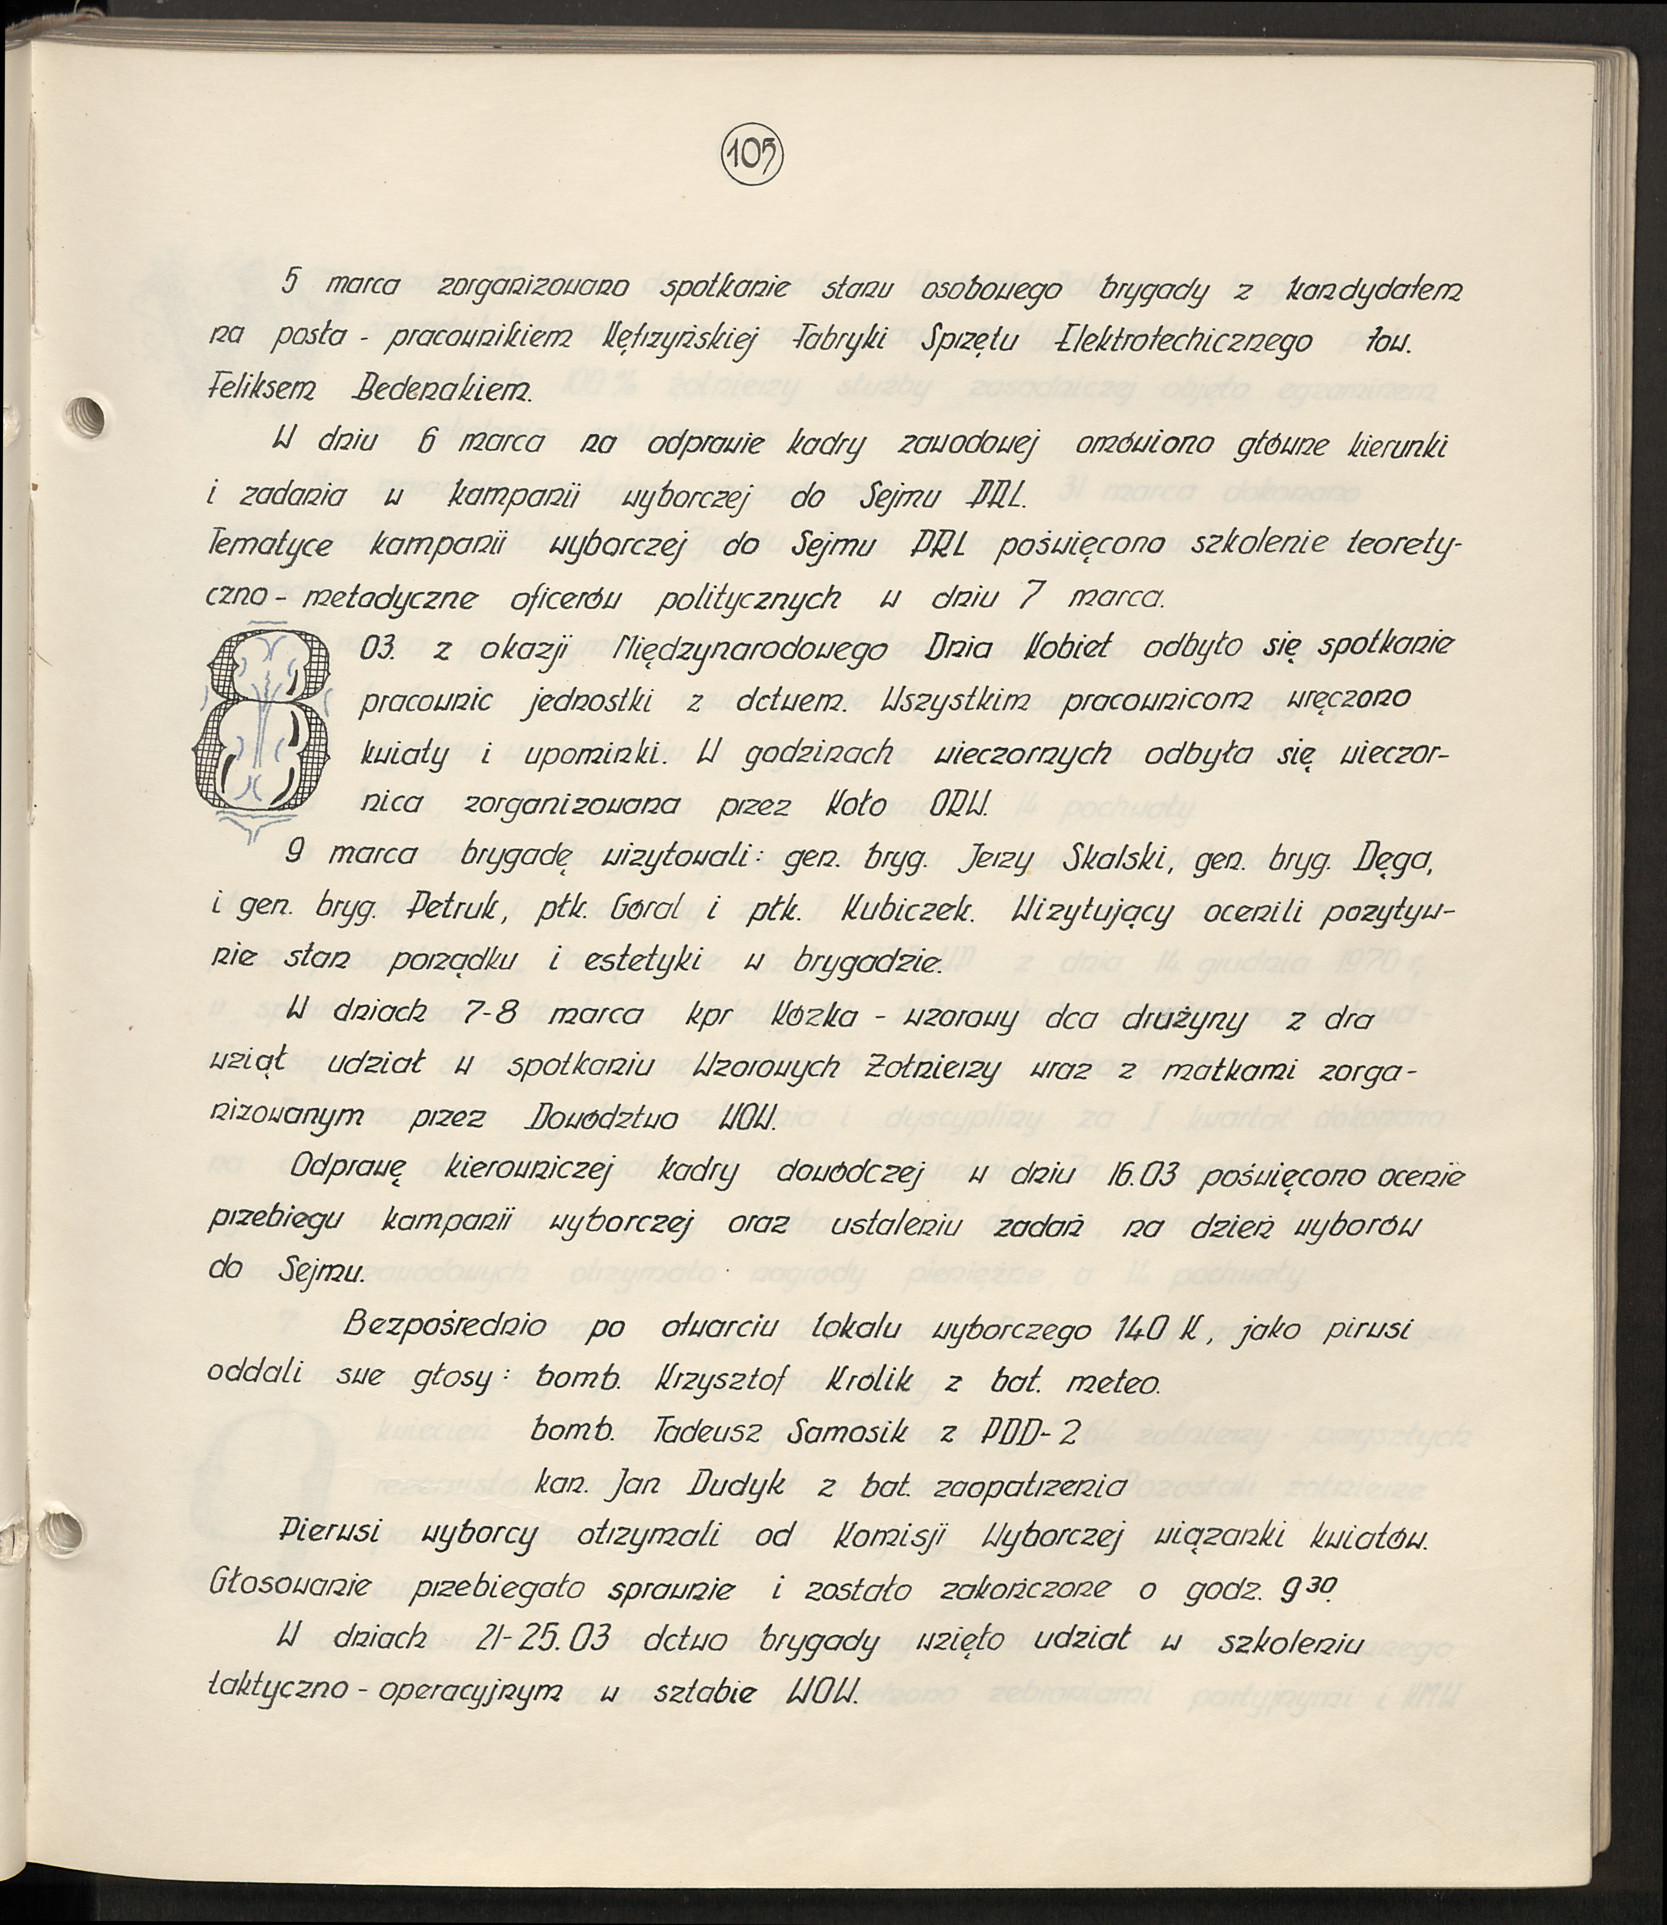 105
5 marca zorganizowano spotkanie stanu osobowego brygady z kandydatem
na posła - pracownikiem Kętrzyńskiej Fabryki Sprzętu Elektrotechicznego tow.
Feliksem Bedenakiem.
W dniu 6 marca na odprawie kadry zawodowej omówiono główne kierunki
i zadania w kampanii wyborczej do Sejmu PRL.
Tematyce kampanii wyborczej do Sejmu PRL poświęcono szkolenie teorety-
czno - metodyczne oficerów politycznych w dniu 7 marca.
8 03. z okazji Międzynarodowego Dnia Kobiet odbyło się spotkanie
pracownic jednostki z dctwem. Wszystkim pracownicom wręczono
kwiaty i upominki. W godzinach wieczornych odbyła się wieczor-
nica zorganizowana przez Koło ORW.
9 marca brygadę wizytowali: gen. bryg. Jerzy Skalski, gen. bryg. Dęga,
i gen. bryg. Petruk, płk. Góral i płk. Kubiczek. Wizytujący ocenili pozytyw-
nie stan porządku i estetyki w brygadzie.
W dniach 7-8 marca kpr Kózka - wzorowy dca drużyny z dra
wziął udział w spotkaniu Wzorowych Żołnierzy wraz z matkami zorga-
nizowanym przez Dowództwo WOW.
Odprawę kierowniczej kadry dowódczej w dniu 16.03 poświęcono ocenie
przebiegu kampanii wyborczej oraz ustaleniu zadań na dzień wyborów
do Sejmu.
Bezpośrednio po otwarciu lokalu wyborczego 140 K, jako pirwsi
oddali swe głosy: bomb. Krzysztof Królik z bat. meteo.
bomb. Tadeusz Samosik z PDD-2
kan. Jan Dudyk z bat. zaopatrzenia
Pierwsi wyborcy otrzymali od Komisji Wyborczej wiązanki kwiatów.
Głosowanie przebiegało sprawnie i zostało zakończone o godz. 9 30.
W dniach 21-25.03 dctwo brygady wzięło udział w szkoleniu
taktyczno - operacyjnym w sztabie WOW.